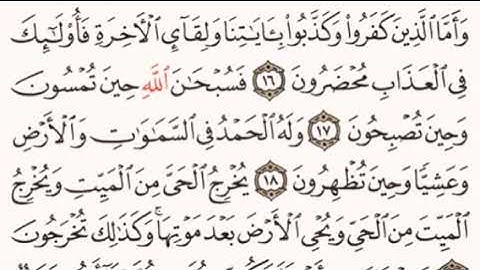 وَأَمَّا ٱلَّذِينَ كَفَرُوا۟ وَكَذَّبُوا۟ بِـَٔايَـٰتِنَا وَلِقَآئِ ٱلْـَٔاخِرَةِ فَأُو۟لَـٰٓئِكَ
فِى ٱلْعَذَابِ مُحْضَرُونَ ١٦ فَسُبْحَـٰنَ ٱللَّهِ حِينَ تُمْسُونَ
وَحِينَ تُصْبِحُونَ ١٧ وَلَهُ ٱلْحَمْدُ فِى ٱلسَّمَـٰوَٰتِ وَٱلْأَرْضِ
وَعَشِيًّا وَحِينَ تُظْهِرُونَ ١٨ يُخْرِجُ ٱلْحَىَّ مِنَ ٱلْمَيِّتِ وَيُخْرِجُ
ٱلْمَيِّتَ مِنَ ٱلْحَىِّ وَيُحْىِ ٱلْأَرْضَ بَعْدَ مَوْتِهَا ۚ وَكَذَٰلِكَ تُخْرَجُونَ